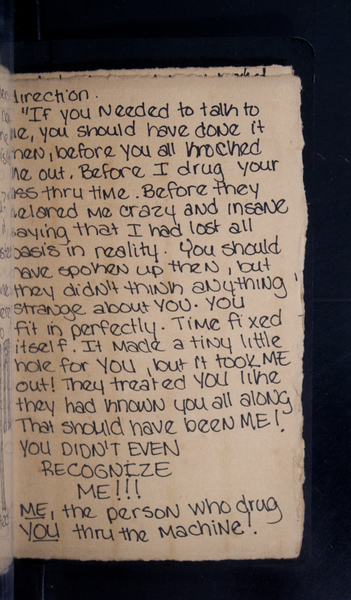 direction.
"If you needed to talk to
me, you should have done it
hen, before you all knocked
me out. Before I drug your
ass thru time. Before they
elared me crazy and insane
saying that I had lost all
basis in reality. You should
have spoken up then, but
they didn't think anything
strange about YOU. YOU
fit in perfectly. Time fixed
itself. It made a tiny little
hole for YOU, but it took ME
out! They treated YOU like
they had known you all along
That should have been ME!
YOU DIDN'T EVEN
RECOGNIZE
ME!!!
ME, the person who drug
YOU thru the Machine!